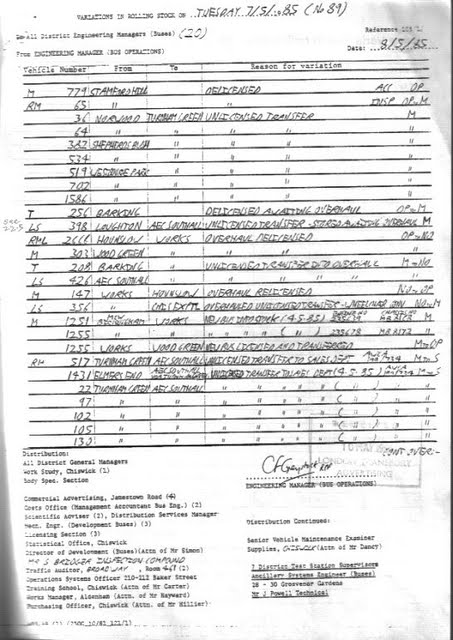 VARIATIONS IN ROLLING STOCK ON TUESDAY 7/5/1985 (No 89)
District Engineering Managers (Buses) (20)
Reference
From ENGINEERING MANAGER (BUS OPERATIONS) Date: 8/5/85
Vehicle Number From To Reason for variation
M 779 STAMFORD HILL DELICENSED ACC OP
RM 65 " " INSP OP-M
36 NORWOOD TURNHAM GREEN UNLICENSED TRANSFER M
64 " " " " "
382 SHEPHERDS BUSH " " " "
534 " " " " "
519 WESTBOURNE PARK " " " "
702 " " " " "
1586 " " " " "
T 256 BARKING DELICENSED AWAITING OVERHAUL OP-M
LS 398 LOUGHTON AEC SOUTHALL UNLICENSED TRANSFER - STORED AWAITING OVERHAUL M
RML 2666 HOUNSLOW WORKS OVERHAUL DELICENSED OP-NO
M 303 WOOD GREEN " " "
T 208 BARKING " UNLICENSED TRANSFER INTO OVERHAUL M-NO
LS 426 AEC SOUTHALL " " " " "
M 147 WORKS HOUNSLOW OVERHAUL RELICENSED NO-OP
LS 356 " OVERHAULED UNLICENSED TRANSFER - NO-M
M 1251 MCW BIRMINGHAM WORKS NEW BUS INTO STOCK (4.5.85) M
1255 " " " " " MB 8172 "
1255 WORKS WOOD GREEN NEW BUS LICENSED AND TRANSFERRED M-OP
RM 517 TURNHAM GREEN AEC SOUTHALL UNLICENSED TRANSFER TO SALES DEPT M-S
1431 ELMERS END AEC SOUTHALL UNLICENSED TRANSFER TO DEPT (4.5.85) M-S
22 TURNHAM GREEN AEC SOUTHALL " " " " ( " ) " "
97 " " " " " " ( " ) " "
102 " " " " " " ( " ) " "
105 " " " " " " ( " ) " "
130 " " " " " " ( " ) " "
CONT OVER:-
Distribution:
All District General Managers
Work Study, Chiswick (1)
Body Spec. Section
ENGINEERING MANAGER (BUS OPERATIONS)
Commercial Advertising, Jamestown Road (4)
Costs Office (Management Accountant Bus Eng.) (2)
Scientific Adviser (2), Distribution Services Manager
Mech. Engr. (Development Buses) (3)
Licensing Section (3)
Statistical Office, Chiswick
Director of Development (Buses)(Attn of Mr Simon)
MR S BRIDGER INSPECTION COMPOUND
Traffic Auditor, BROADWAY, Room (2)
Operations Systems Officer 210-212 Baker Street
Training School, Chiswick (Attn of Mr Carter)
Works Manager, Aldenham (Attn of Mr Hayward)
Purchasing Officer, Chiswick (Attn of Mr Hillier)
Distribution Continued:
Senior Vehicle Maintenance Examiner
Supplies, CHISWICK (Attn of Mr Dancy)
7 District Test Station Supervisors
Ancillary Systems Engineer (Buses)
28 - 30 Grosvenor Gardens
Mr J Powell Technical